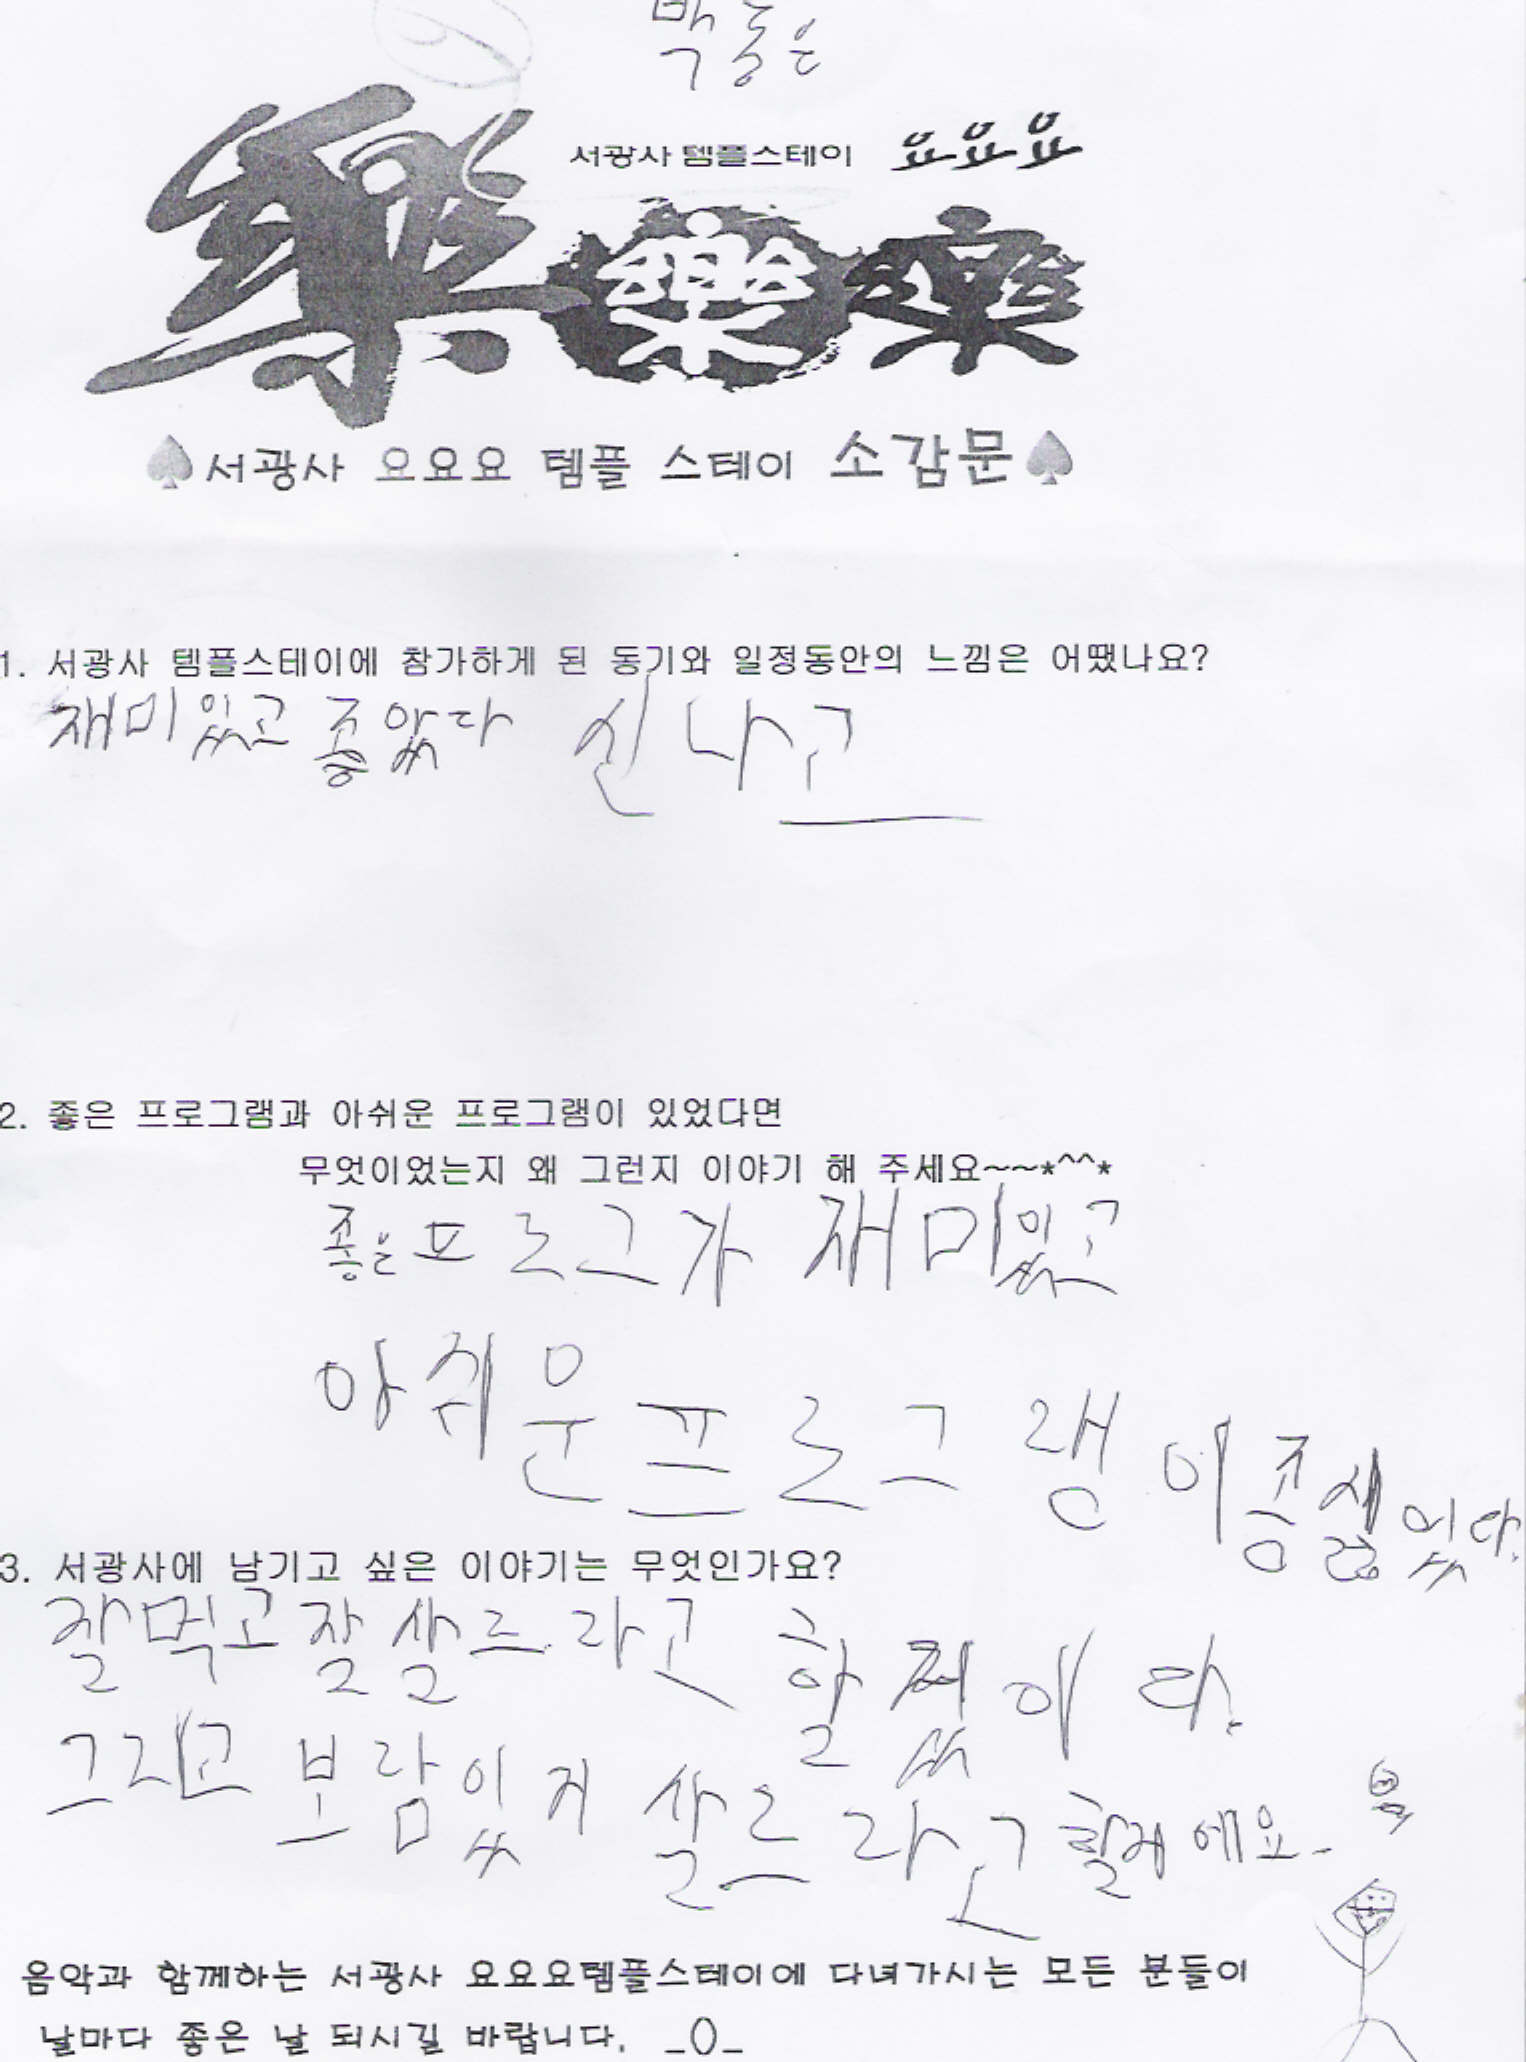 백동은
서광사 템플스테이 요요요
樂 樂 樂
♠서광사 요요요 템플 스테이 소감문♠
1. 서광사 템플스테이에 참가하게 된 동기와 일정동안의 느낌은 어땠나요?
재미있고 좋았다 신나고
2. 좋은 프로그램과 아쉬운 프로그램이 있었다면
무엇이었는지 왜 그런지 이야기 해 주세요~~*^^*
좋은프로그가 재미있고
아쉬운프로그랭이좀싫었다.
3. 서광사에 남기고 싶은 이야기는 무엇인가요?
잘먹고잘살르라고 할 이다.
그리고 보람있게 살르라고할게에요.
음악과 함께하는 서광사 요요요템플스테이에 다녀가시는 모든 분들이
날마다 좋은 날 되시길 바랍니다. _O_